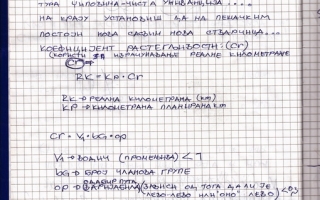 ТУРА ЧИПОВИНА-ЧИСТА УНИВАЦИЈА...
НА КРАЈУ УСТАНОВИШ ДА НА ПЕШАЧКИМ
ПОСТОЈИ НОВА САСВИМ НОВА СТВАРЧИЦА...
КОЕФИЦИЈЕНТ РАСТЕГЉИВОСТИ: (Cr)
(КОРИСТИ ЗА ИЗРАЧУНАВАЊЕ РЕАЛНЕ КИЛОМЕТРАЖЕ
Cr
RK = Kp · Cr
RK → РЕАЛНА КИЛОМЕТРАЖА (km)
KP → КИЛОМЕТРАЖА ПЛАНИРАНА km
Cr = Vđ · bG · op
Vđ → ВОДИЧ (ПРОМЕНЉИВА) < 1
bG → БРОЈ ЧЛАНОВА ГРУПЕ
ОДАБИР ПУТА
op → ВАРИЈАБИЛНА (ЗАВИСИ ОД ТОГА ДА ЛИ ЈЕ
"ЛЕВО-ЛЕВО" ИЛИ "ОНО" ЛЕВО)